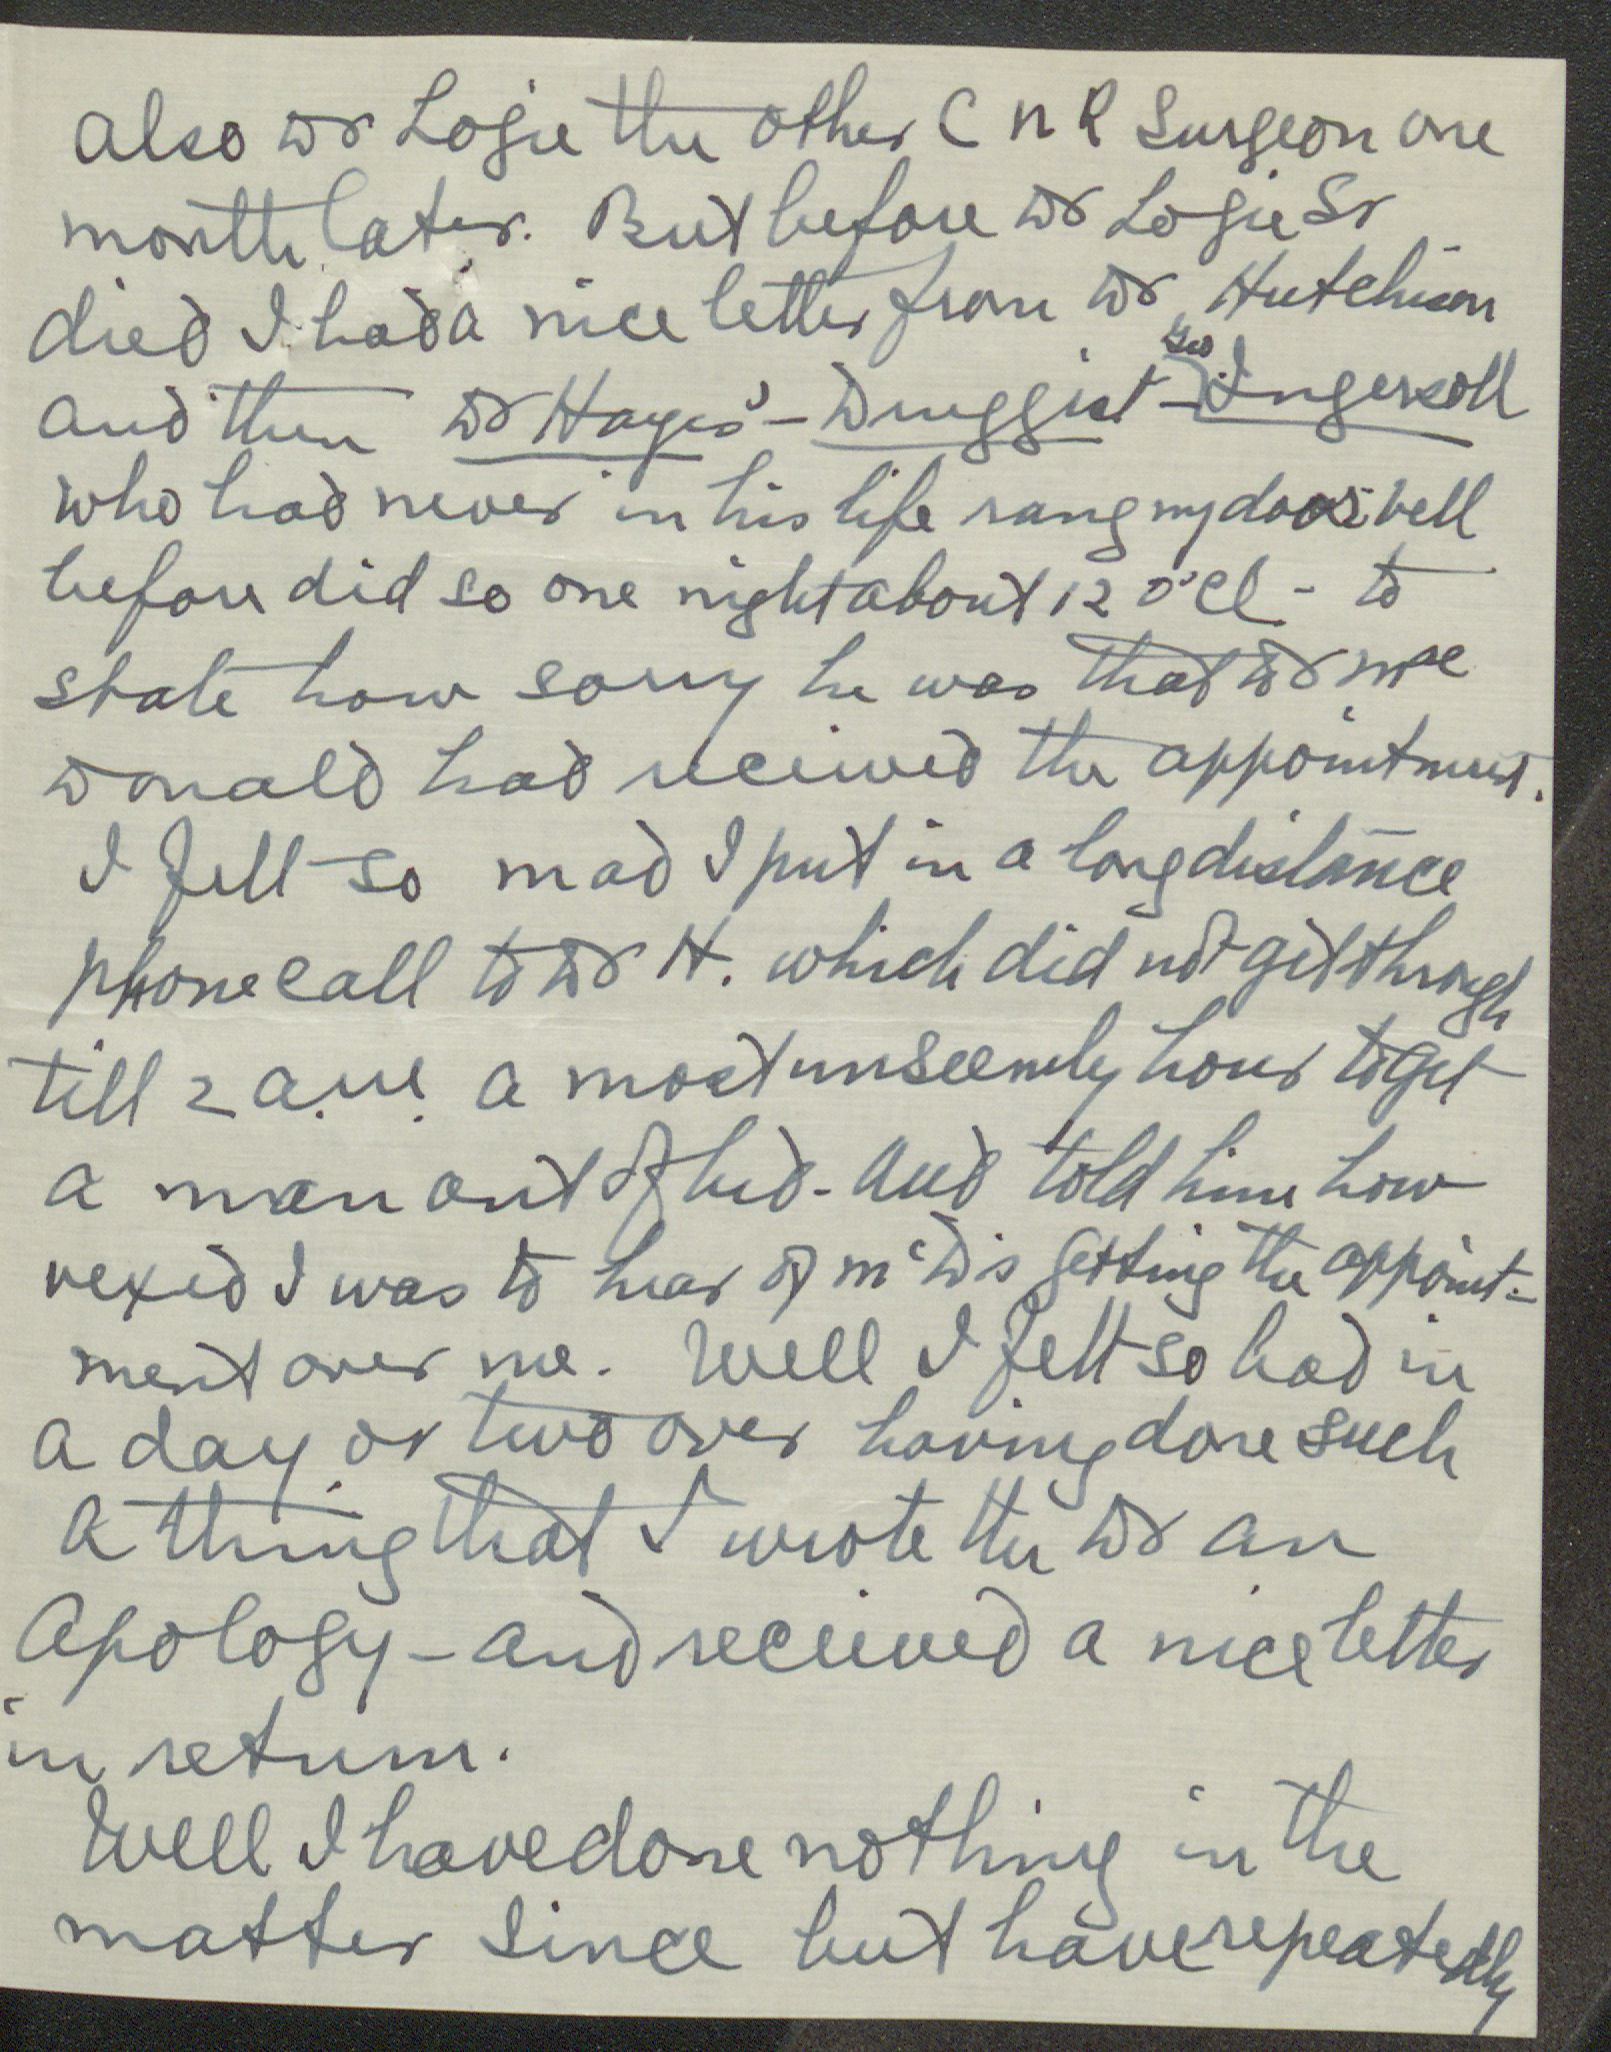 also Dr Logie the other C N R Surgeon one
month later. But before Dr Logie Sr
died I had a nice letter from Dr Hutchison
and then Dr Hayes' - Druggist - Geo Ingersoll
who had never in his life rang my door bell
before did so one night about 12 o'cl - to
state how sorry he was that Dr Mc
Donald had received the appointment.
I felt so mad I put in a long distance
phone call to Dr H. which did not get through
till 2 a.m. a most unseemly hour to get
a man out of bed - and told him how
vexed I was to hear of McD's getting the appoint-
ment over me. Well I felt so bad in
a day or two over having done such
a thing that I wrote the Dr an
Apology - and received a nice letter
in return.
Well I have done nothing in the
matter since but have repeatedly